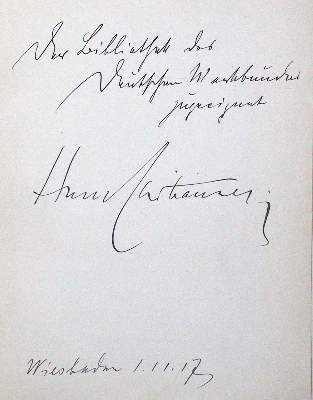 Der Bibliothek des
Deutschen Werkbundes
zugeeignet
Hans Christiansen
Wiesbaden 1.11.17